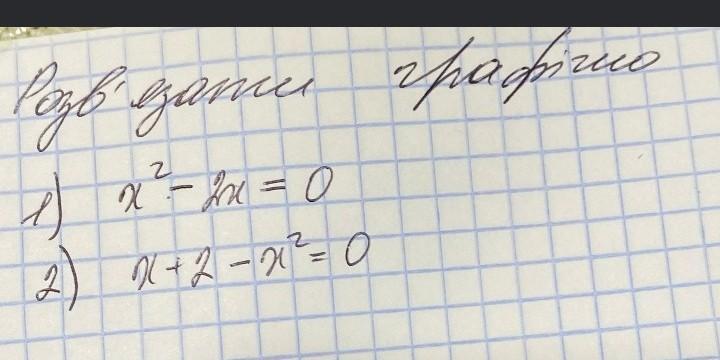 Розв'язати графічно
1) x² - 2x = 0
2) x + 2 - x² = 0